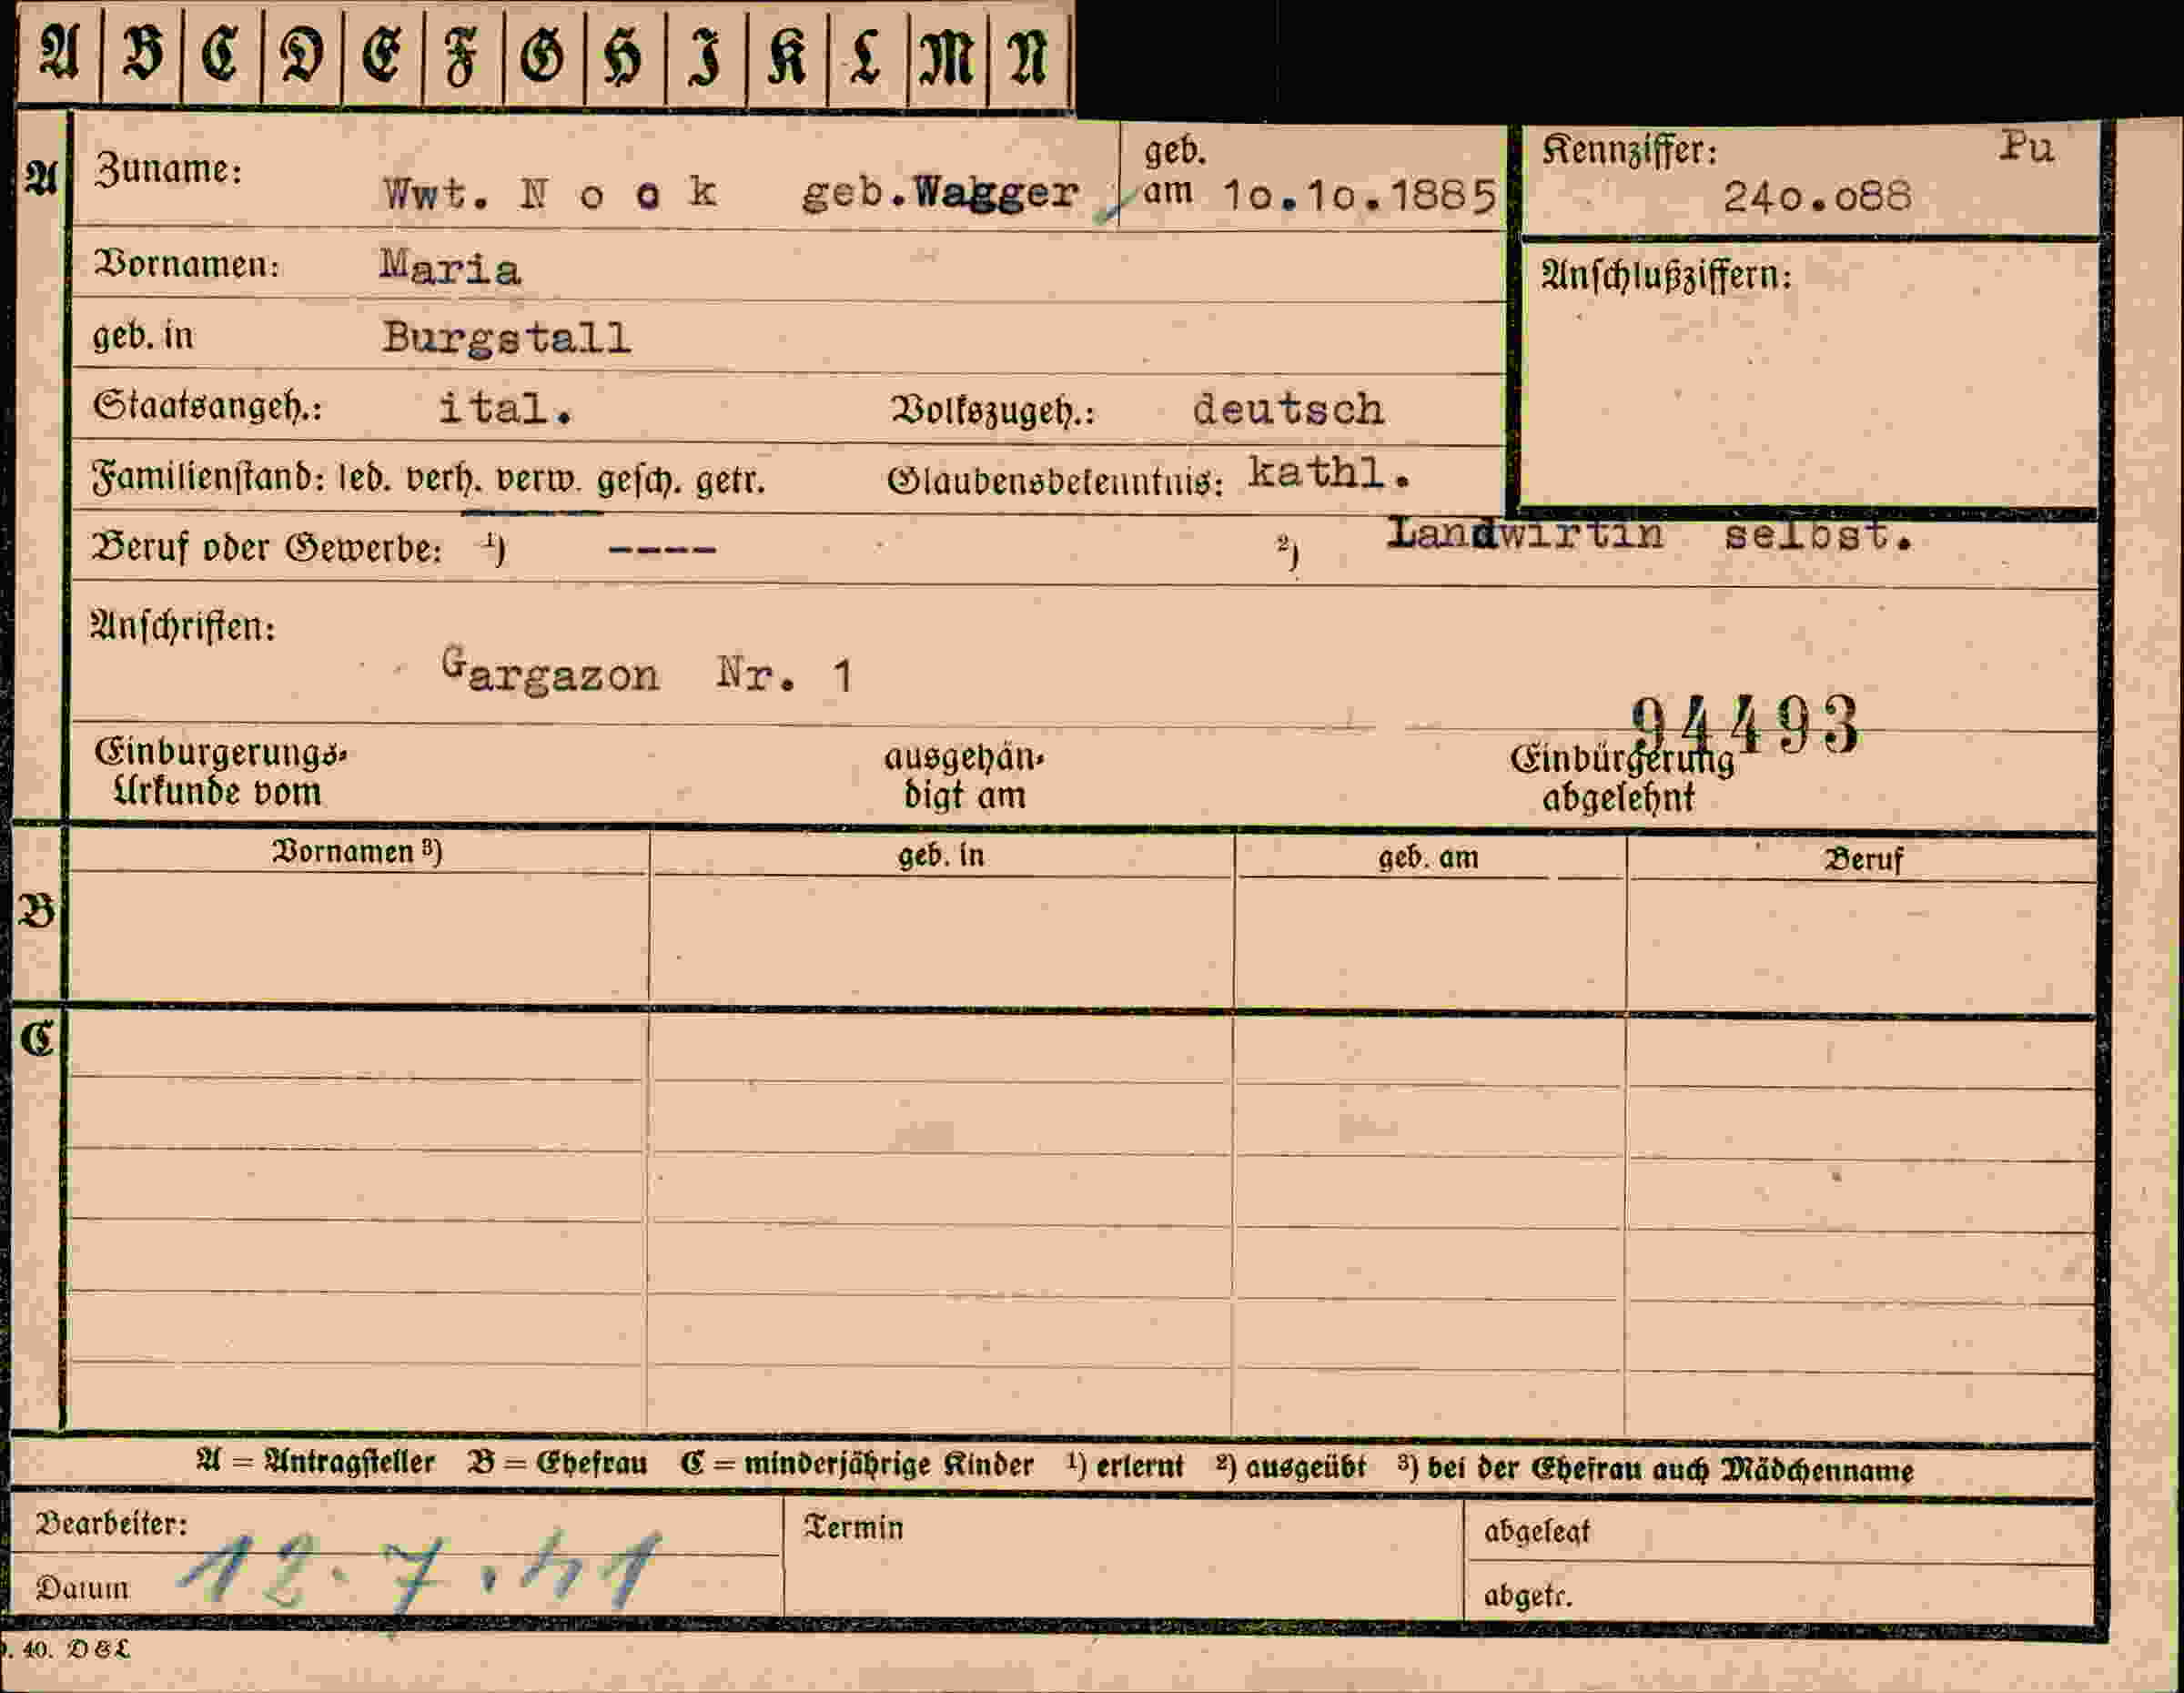 A B C D E F G H I K L M N
A
Zuname: Wwt. N o c k geb.Wagger geb. am 10.10.1885
Kennziffer: Pu
240.088
Vornamen: Maria
Anschlußziffern:
geb. in Burgstall
Staatsangeh.: ital. Volkszugeh.: deutsch
Familienstand: led. verh. verw. gesch. getr. Glaubensbekenntnis: kathl.
Beruf oder Gewerbe: ¹) ---- ²) Landwirtin selbst.
Anschriften:
Gargazon Nr. 1
94493
Einbürgerungs-
Urkunde vom
ausgehän-
digt am
Einbürgerung
abgelehnt
Vornamen ³) geb. in geb. am Beruf
B
C
A = Antragsteller B = Ehefrau C = minderjährige Kinder ¹) erlernt ²) ausgeübt ³) bei der Ehefrau auch Mädchenname
Bearbeiter: Termin abgelegt
Datum 12.7.41 abgetr.
40. D & L